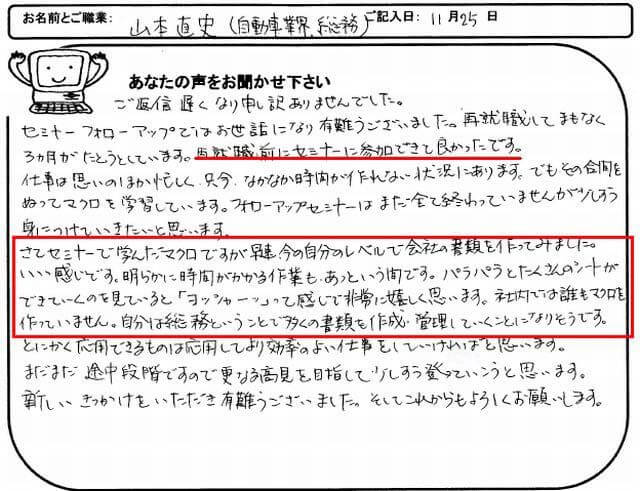 お名前とご職業: 山本直史(自動車業界、総務) ご記入日: 11月25日
あなたの声をお聞かせ下さい
ご返信遅くなり申し訳ありませんでした。
セミナーフォローアップではお世話になり有難うございました。再就職してまもなく
3ヵ月がたとうとしています。再就職前にセミナーに参加できて良かったです。
仕事は思いのほか忙しく、只今、なかなか時間が作れない状況にあります。でもその合間を
ぬってマクロを学習しています。フォローアップセミナーはまだ全て終わっていませんが少しずつ
身につけていきたいと思います。
さてセミナーで学んだマクロですが早速、今の自分のレベルで会社の書類を作ってみました。
いい感じです。明らかに時間がかかる作業も、あっという間です。パラパラとたくさんのシートが
できていくのを見ていると「ヨッシャーッ」って感じで非常に嬉しく思います。社内では誰もマクロを
作っていません。自分は総務ということで多くの書類を作成・管理していくことになりそうです。
とにかく応用できるものは応用してより効率のよい仕事をしていければと思います。
まだまだ途中段階ですので更なる高見を目指して少しずつ登っていこうと思います。
新しいきっかけをいただき有難うございました。そしてこれからもよろしくお願いします。